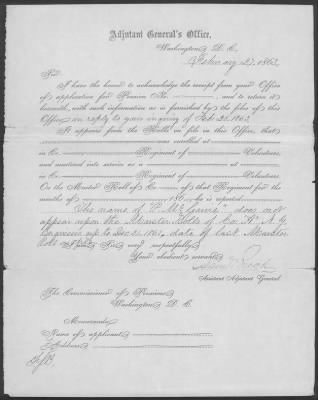 Adjutant General's Office,
Washington, D. C.
February 27, 1862
Sir:
I have the honor to acknowledge the receipt from your Office
of application for Pension No. , and to return it
herewith, with such information as is furnished by the files of this
Office in reply to your inquiry of Feb. 20, 1862
It appears from the Rolls on file in this Office, that
was enrolled at
in Co. Regiment of Volunteers,
and mustered into service as a at
in Co. Regiment of Volunteers.
On the Muster Roll of Co. of that Regiment for the
months of 186 , he is reported
"The name of P. McGarric" does not
appear upon the Muster Rolls of Co. "K"
Engineers up to Dec 31, 1861, date of last Muster
Rolls
I am, Sir, very respectfully
Your obedient servant
Assistant Adjutant General
The Commissioner of Pensions
Washington, D. C.
Memoranda:
Name of applicant
Address